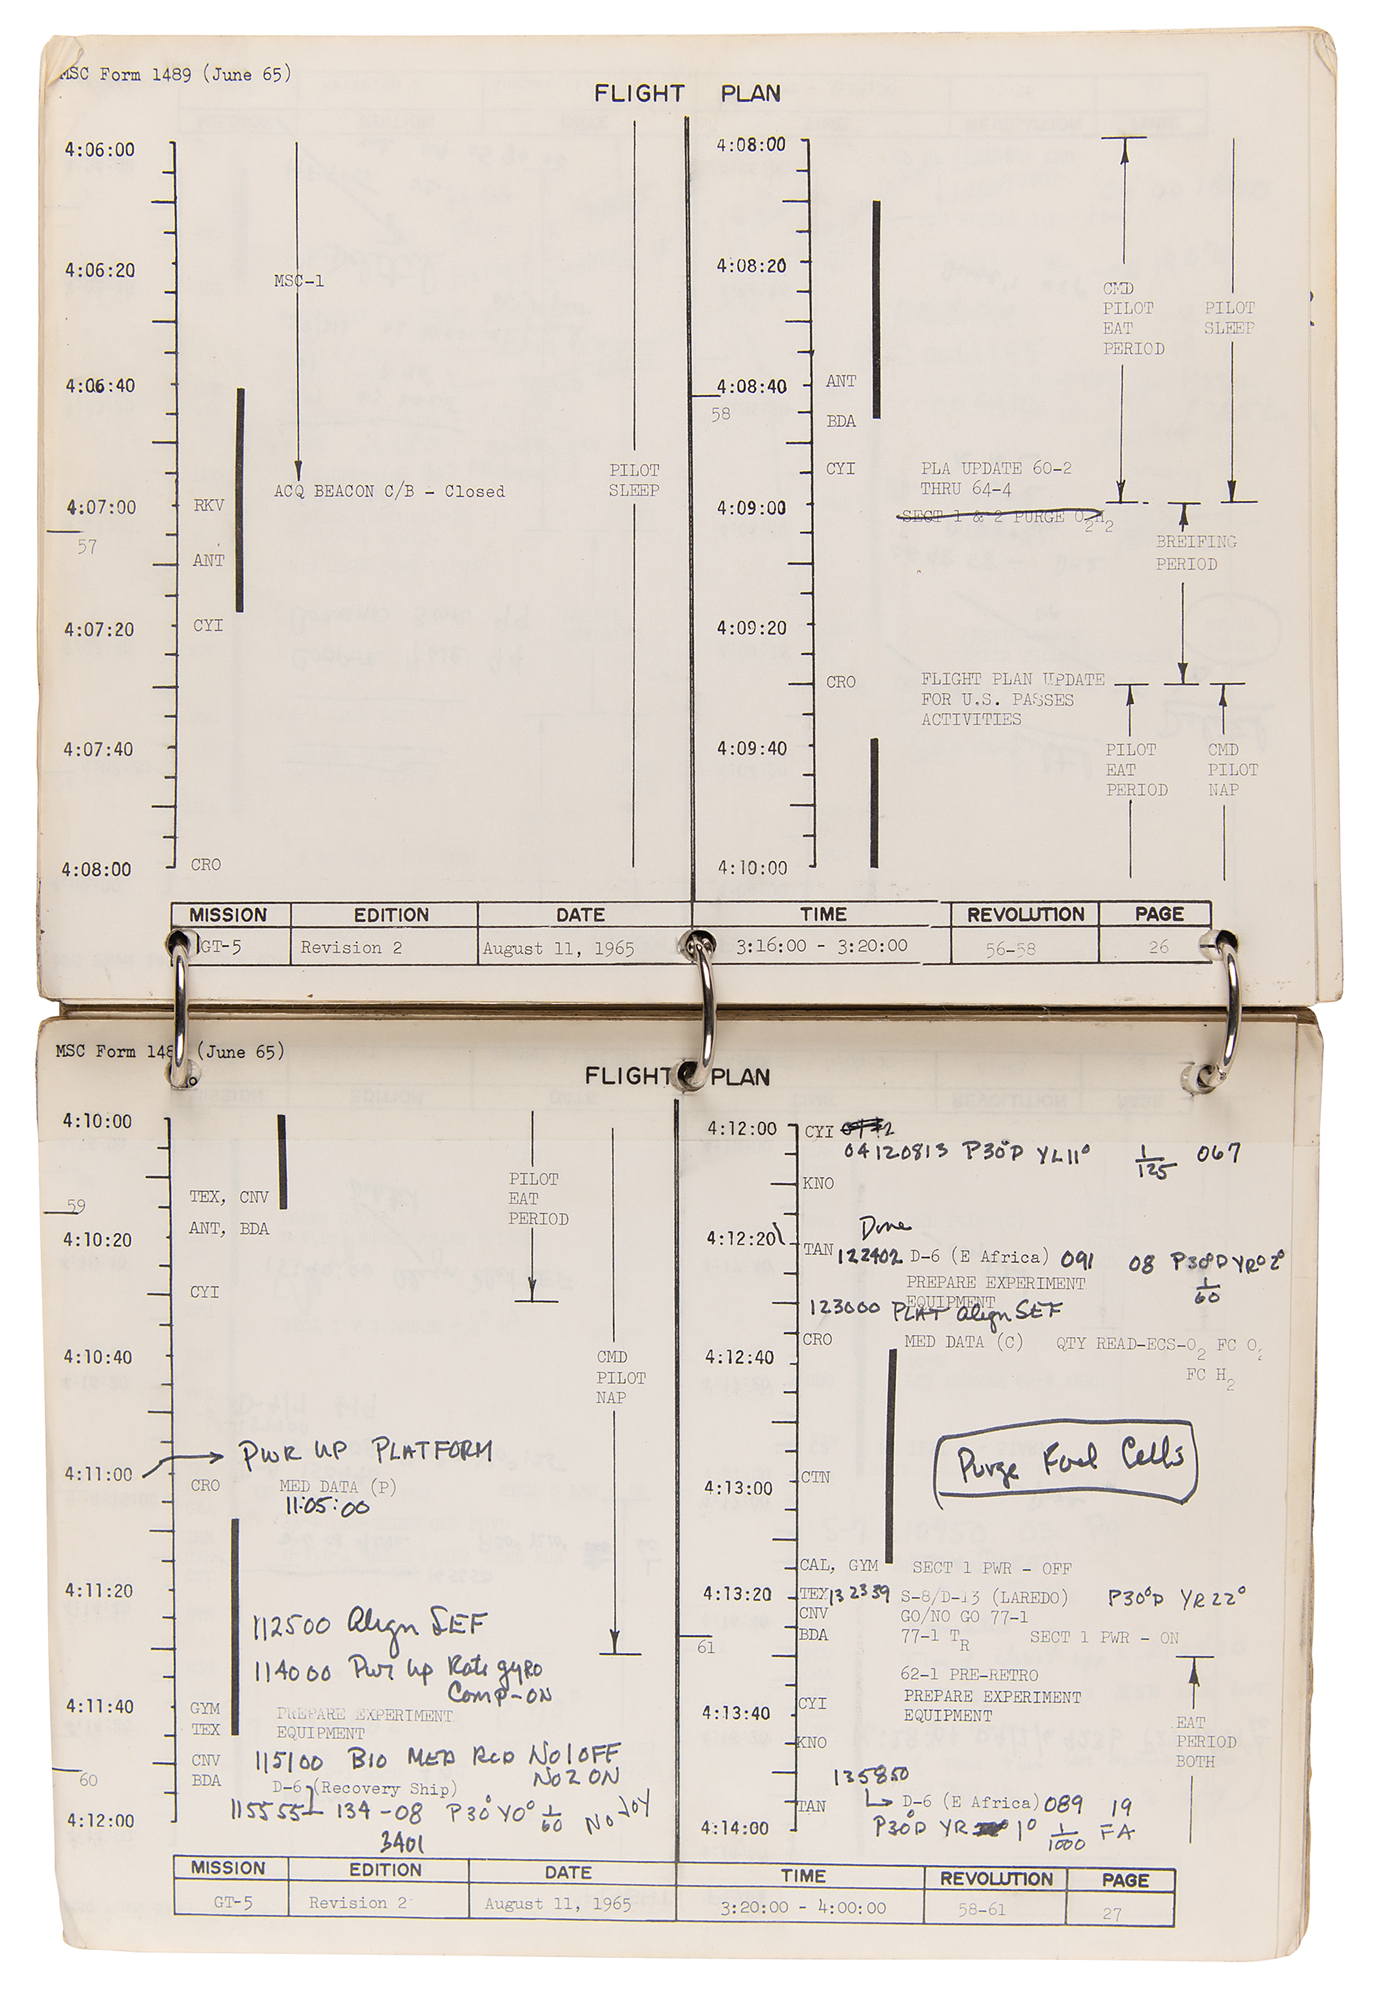 MSC Form 1489 (June 65)
FLIGHT PLAN
4:06:00
4:06:20
MSC-1
4:06:40
ACQ BEACON C/B - Closed
PILOT
SLEEP
RKV
4:07:00
57
ANT
4:07:20
CYI
4:07:40
4:08:00
CRO
4:08:00
4:08:20
CMD
PILOT
EAT
PERIOD
PILOT
SLEEP
4:08:40
ANT
58
BDA
CYI
PLA UPDATE 60-2
THRU 64-4
4:09:00
SECT 1 & 2 PURGE O2H2
BREIFING
PERIOD
4:09:20
CRO
FLIGHT PLAN UPDATE
FOR U.S. PASSES
ACTIVITIES
4:09:40
PILOT
EAT
PERIOD
CMD
PILOT
NAP
4:10:00
MISSION EDITION DATE TIME REVOLUTION PAGE
GT-5 Revision 2 August 11, 1965 3:16:00 - 3:20:00 56-58 26
MSC Form 148 (June 65)
FLIGHT PLAN
4:10:00
PILOT
EAT
PERIOD
TEX, CNV
59
ANT, BDA
4:10:20
CYI
4:10:40
CMD
PILOT
NAP
PWR UP PLATFORM
4:11:00
CRO MED DATA (P)
11:05:00
4:11:20
112500 Align SEF
114000 Pwr Up Rate gyro
Comp-ON
4:11:40
GYM PREPARE EXPERIMENT
TEX EQUIPMENT
CNV 115100 BIO MED RCD No1 OFF
No2 ON
60
BDA D-6 (Recovery Ship)
115555 134-08 P30° Y0° 1/60 No JOY
4:12:00
3401
4:12:00 CYI
04120813 P30°D YL11° 1/125 067
KNO
Done
4:12:20
TAN 122402 D-6 (E Africa) 091 08 P30°D YR02°
1/60
PREPARE EXPERIMENT
EQUIPMENT
123000 PLAT Align SEF
CRO MED DATA (C) QTY READ-ECS-O2 FC O2
4:12:40
FC H2
Purge Fuel Cells
CTN
4:13:00
CAL, GYM SECT 1 PWR - OFF
4:13:20 TEX 132359 S-8/D-13 (LAREDO) P30°D YR22°
CNV GO/NO GO 77-1
BDA 77-1 TR SECT 1 PWR - ON
61
62-1 PRE-RETRO
CYI PREPARE EXPERIMENT
EQUIPMENT
4:13:40
KNO
EAT
PERIOD
BOTH
135850
TAN D-6 (E Africa) 089 19
P30°D YR 1° 1/1000 FA
4:14:00
MISSION EDITION DATE TIME REVOLUTION PAGE
GT-5 Revision 2 August 11, 1965 3:20:00 - 4:00:00 58-61 27